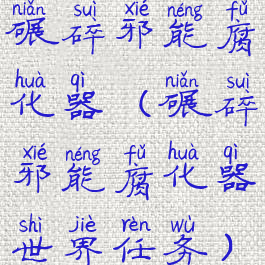 niǎn suì xié néng fǔ
碾碎邪能腐
huà qì niǎn suì
化器（碾碎
xié néng fǔ huà qì
邪能腐化器
shì jiè rèn wù
世界任务）